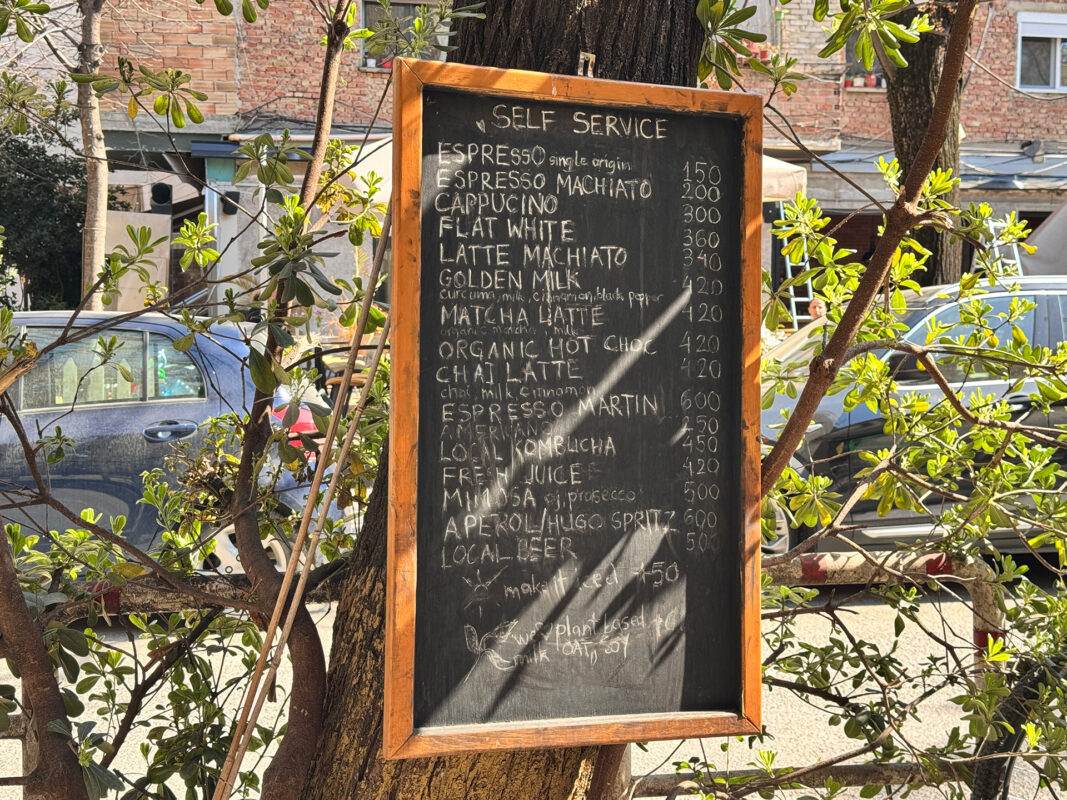 SELF SERVICE
ESPRESSO single origin 150
ESPRESSO MACHIATO 200
CAPPUCINO 300
FLAT WHITE 360
LATTE MACHIATO 340
GOLDEN MILK 420
curcuma, milk, cinnamon, black pepper
MATCHA LATTE 420
organic matcha, milk
ORGANIC HOT CHOC 420
CHAI LATTE 420
chai, milk, cinnamon
ESPRESSO MARTINI 600
AMERICANO 250
LOCAL KOMBUCHA 450
FRESH JUICE 420
MIMOSA oj, prosecco 500
APEROL/HUGO SPRITZ 600
LOCAL BEER 500
make it iced +50
plant based
milk OAT, SOY